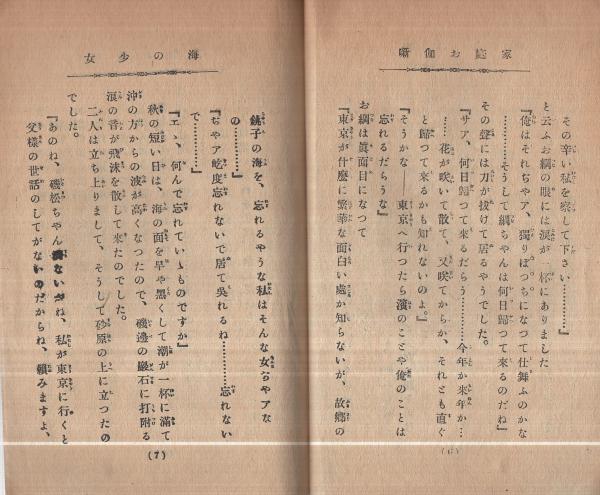 家庭お伽噺
その辛い私を察して下さい…………』
と云ふお綱の眼には涙が一杯にありました
『俺はそれぢやア、獨りぼつちになつて仕舞ふのかな
……そうして綱ちやんは何日歸つて來るのだね』
その聲には力が拔けて居るやうでした。
『サア、何日歸つて來るだらう………今年か來年か…
……花が咲いて散て、又咲てからか、それとも直ぐ
と歸つて來るかも知れないのよ。』
『そうかな――東京へ行つたら濱のことや俺のことは
忘れるだらうな』
お綱は眞面目になつて
『東京が什麼に繁華な面白い處か知らないが、故郷の
(6)
海の少女
銚子の海を、忘れるやうな私はそんな女ぢやアな
の…………』
『ぢやア屹度忘れないで居て呉れるね…………忘れない
で……』
『エヽ、何んで忘れていゝものですか』
秋の短い日は、海の面を早や黑くして潮が一杯に滿て
沖の方からの波が高くなつたので、磯邊の巖石に打附る
浪の音が飛沫を散して來たのでした。
二人は立ち上りまして、そうして砂原の上に立つたの
でした。
『あのね、磯松ちやん、私が東京に行くと
父樣の世話のしてがないのだからね、頼みますよ、
(7)